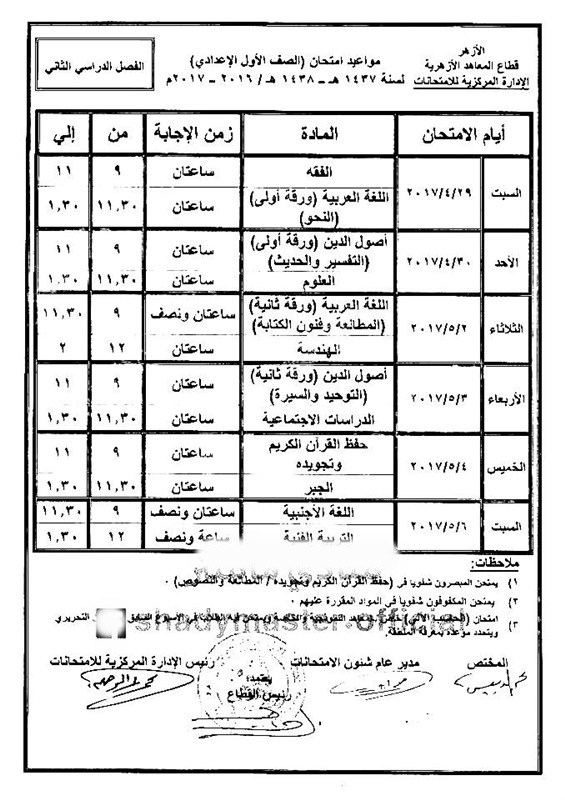 الأزهر
قطاع المعاهد الأزهرية
الإدارة المركزية للامتحانات
مواعيد امتحان (الصف الأول الإعدادي)
لسنة ١٤٣٧ هـ - ١٤٣٨ هـ / ٢٠١٦ - ٢٠١٧م
الفصل الدراسي الثاني
أيام الامتحان المادة زمن الإجابة من إلي
السبت ٢٠١٧/٤/٢٩ الفقه ساعتان ٩ ١١
اللغة العربية (ورقة أولى) (النحو) ساعتان ١١,٣٠ ١,٣٠
الأحد ٢٠١٧/٤/٣٠ أصول الدين (ورقة أولى) (التفسير والحديث) ساعتان ٩ ١١
العلوم ساعتان ١١,٣٠ ١,٣٠
الثلاثاء ٢٠١٧/٥/٢ اللغة العربية (ورقة ثانية) (المطالعة وفنون الكتابة) ساعتان ونصف ٩ ١١,٣٠
الهندسة ساعتان ١٢ ٢
الأربعاء ٢٠١٧/٥/٣ أصول الدين (ورقة ثانية) (التوحيد والسيرة) ساعتان ٩ ١١
الدراسات الاجتماعية ساعتان ١١,٣٠ ١,٣٠
الخميس ٢٠١٧/٥/٤ حفظ القرآن الكريم وتجويده ساعتان ٩ ١١
الجبر ساعتان ١١,٣٠ ١,٣٠
السبت ٢٠١٧/٥/٦ اللغة الأجنبية ساعتان ونصف ٩ ١١,٣٠
التربية الفنية ساعة ونصف ١٢ ١,٣٠
ملاحظات:
١) يمتحن المبصرون شفويا في (حفظ القرآن الكريم وتجويده / المطالعة والنصوص) .
٢) يمتحن المكفوفون شفويا في المواد المقررة عليهم .
٣) امتحان (الحاسب الآلي) النموذجية والخاصة ويمتحن فيه الطلاب في الأسبوع السابق التحريري
ويتحدد موعده بمعرفة المنطقة.
shadymaster official
المختص
مدير عام شئون الامتحانات
رئيس الإدارة المركزية للامتحانات
يعتمد،
رئيس القطاع